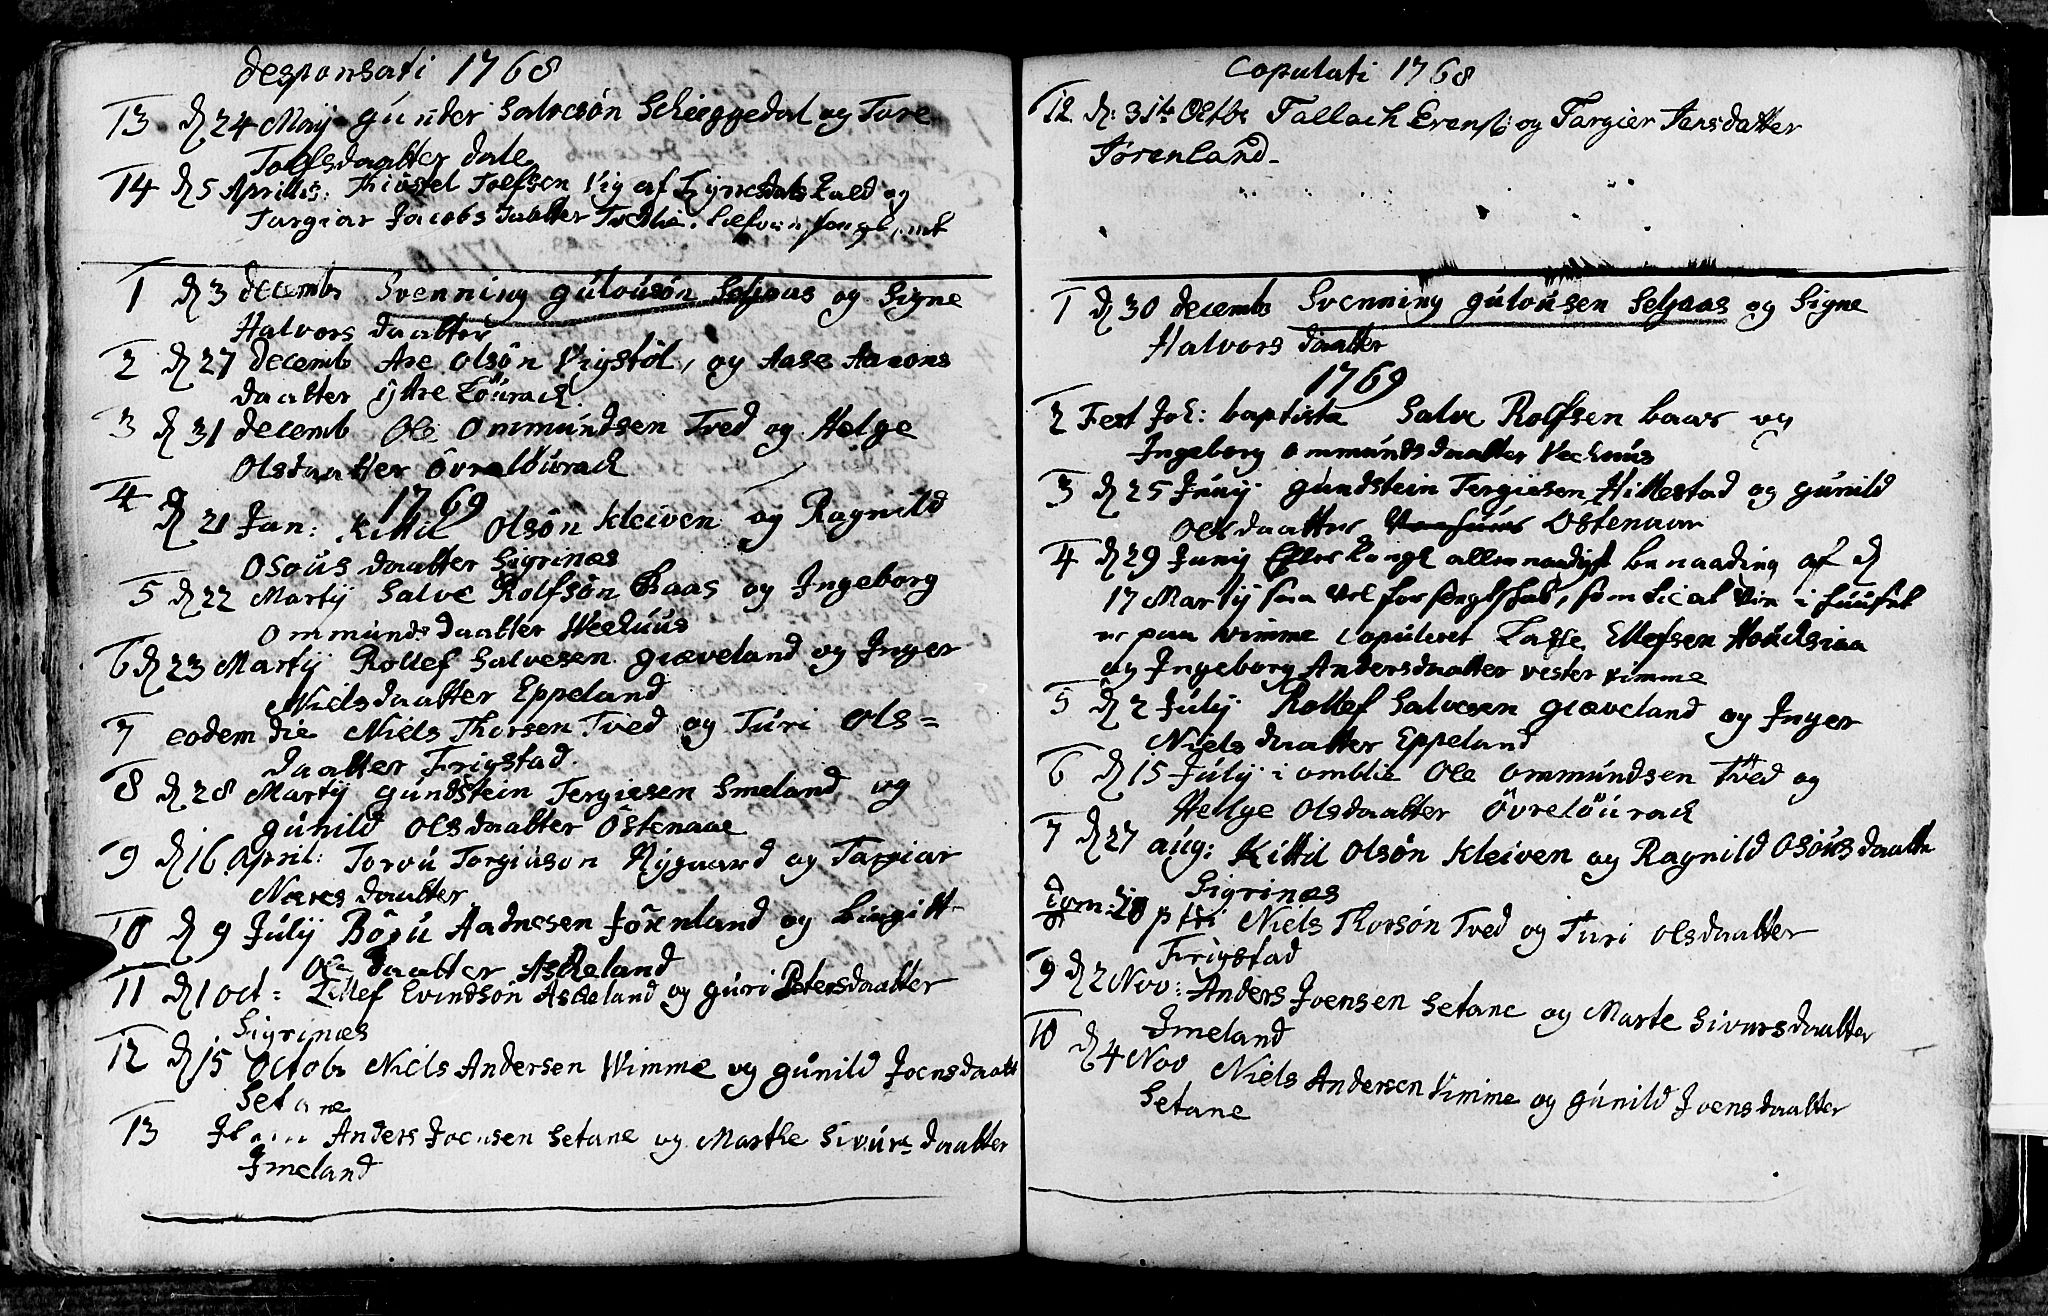 desponsati 1768
13 d 24 Maij gunder Salvesön Scheeggedal og Tore
Tolfsdaatter dale
14 d 5 Aprillis: Tolfsen Vig af Lyngdals og
Targier Jacobs daatter
1 d 3 decemb Svenning gulousön Seljaas og Signe
Halvors daatter
2 d 27 decemb Are Olsön Vigstöl, og Aase Aanons
daatter ytre Löurack
3 d 31 decemb Ole Ommundsen Tved og Helge
Olsdaatter Övrelöurack
1769
4 d 21 Jan: Kittil Olsön Kleiven og Ragnild
Osous daatter Sigrinæs
5 d 22 Martij Salve Rolfsön Baas og Ingeborg
Ommunds daatter Weehuus
6 d 23 Martij Rollef Salvesen græveland og Inger
Nielsdaatter Eppeland
7 eodem die Niels Thorsen Tved og Turi Ols=
daatter Frigstad
8 d 28 Martij gundstein Tergiesen Smeland og
gunild Olsdaatter Östenaae
9 d 16 April: Torou Torgiuson Nygaard og Targiar
daatter
10 d 9 Julij Böru Aadnesen Jörenland og birgitt
Ols daatter Askeland
11 d 1 oct= Ellef Evindsön Askeland og guri Petersdaatter
Sigrinæs
12 d 15 Octobr Niels Andersen Wimme og gunild Joensdaatt
Setane
13 Anders Joensen Setane og Marthe Sivurs daatter
Imeland
Copulati 1768
12 d: 31te Octbr Tallach Evens: og Targier Jensdatter
Jörenland
1 d 30 decemb Svenning gulousen Seljaas og Signe
Halvors daatter
1769
2 Fest Joh: baptista Salve Rolfsen baas og
Ingeborg ommundsdaatter Veehuus
3 d 25 Junij gundstein Tergiesen Hillestad og gunild
Ols daatter Ostenaae
4 d 29 Junij Efter kongl allernaadigst benaading af d
17 Martij saa vel for sengl, som til at i huuset
paa Wimme Copuleret Lasse Ellefsen
og Ingeborg Andersdaatter vester vimme
5 d 2 Julij Rollef Salvesen græveland og Inger
Niels daatter Eppeland
6 d 15 Julij i omblie Ole ommundsen Tved og
Helge Olsdaatter Övrelöurack
7 d 27 aug: Kittil Olsön Kleiven og Ragnild Osöus daatter
Sigrinæs
8 dom: 20 p tri Niels Thorsön Tved og Turi Olsdaatter
Frigstad
9 d 2 Nov: Anders Joensen Setane og Marte Sivursdaatter
Imeland
10 d 4 Nov Niels Andersen Vimme og gunild Joensdaatter
Setane